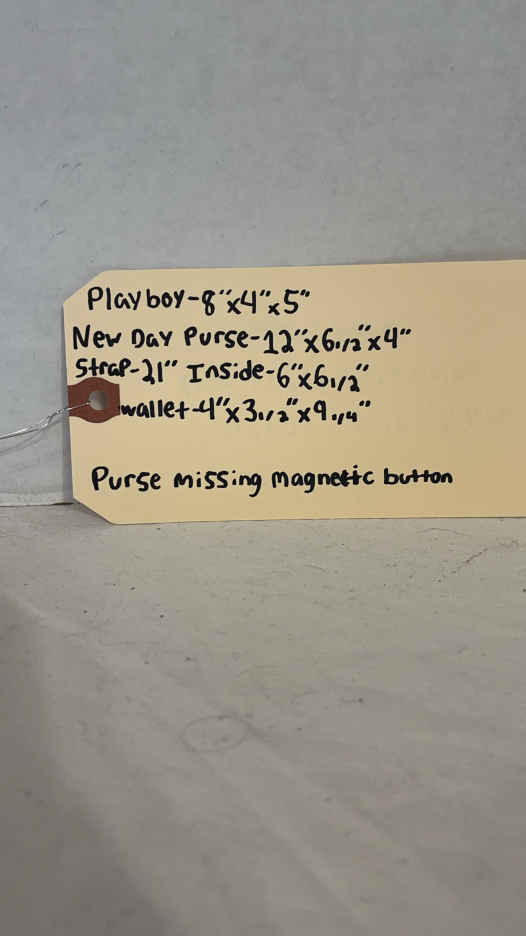 Playboy-8"x4"x5"
New Day Purse-12"x6 1/2"x4"
Strap-21" Inside-6"x6 1/2"
wallet-4"x3 1/2"x9 1/4"
Purse missing magnetic button